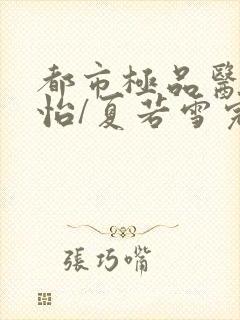 都市極品醫
怡/夏若雪完
張巧嘴